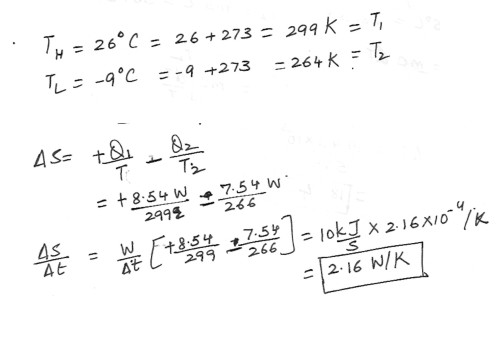 T_H = 26°C = 26 + 273 = 299 K = T₁
T_L = -9°C = -9 + 273 = 264 K = T₂
ΔS = +Q₁/T - Q₂/T₂
= +8.54 W/299 - 7.54 W/266
ΔS/Δt = W/Δt [+8.54/299 - 7.54/266] = 10 kJ/s × 2.16 × 10⁻⁴/K
= 2.16 W/K